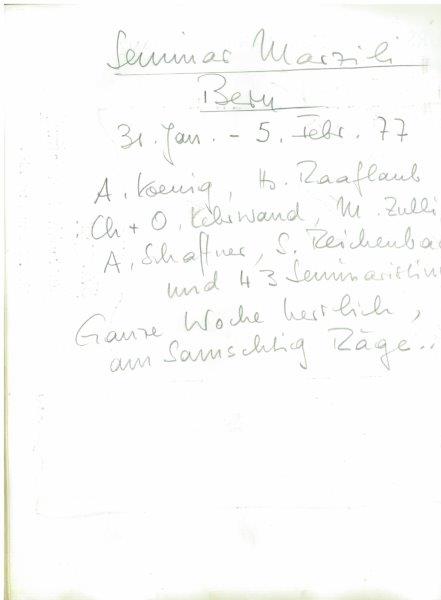 Seminar Marzili
Bern
31. Jan. - 5. Febr. 77
A. Koenig, H. Raaflaub
Ch + O. Kehrwand, M. Zulli
A. Schaffner, S. Reichenba
und 43 Seminaristin
Ganze Woche herrlich,
am Samschtig Räge..